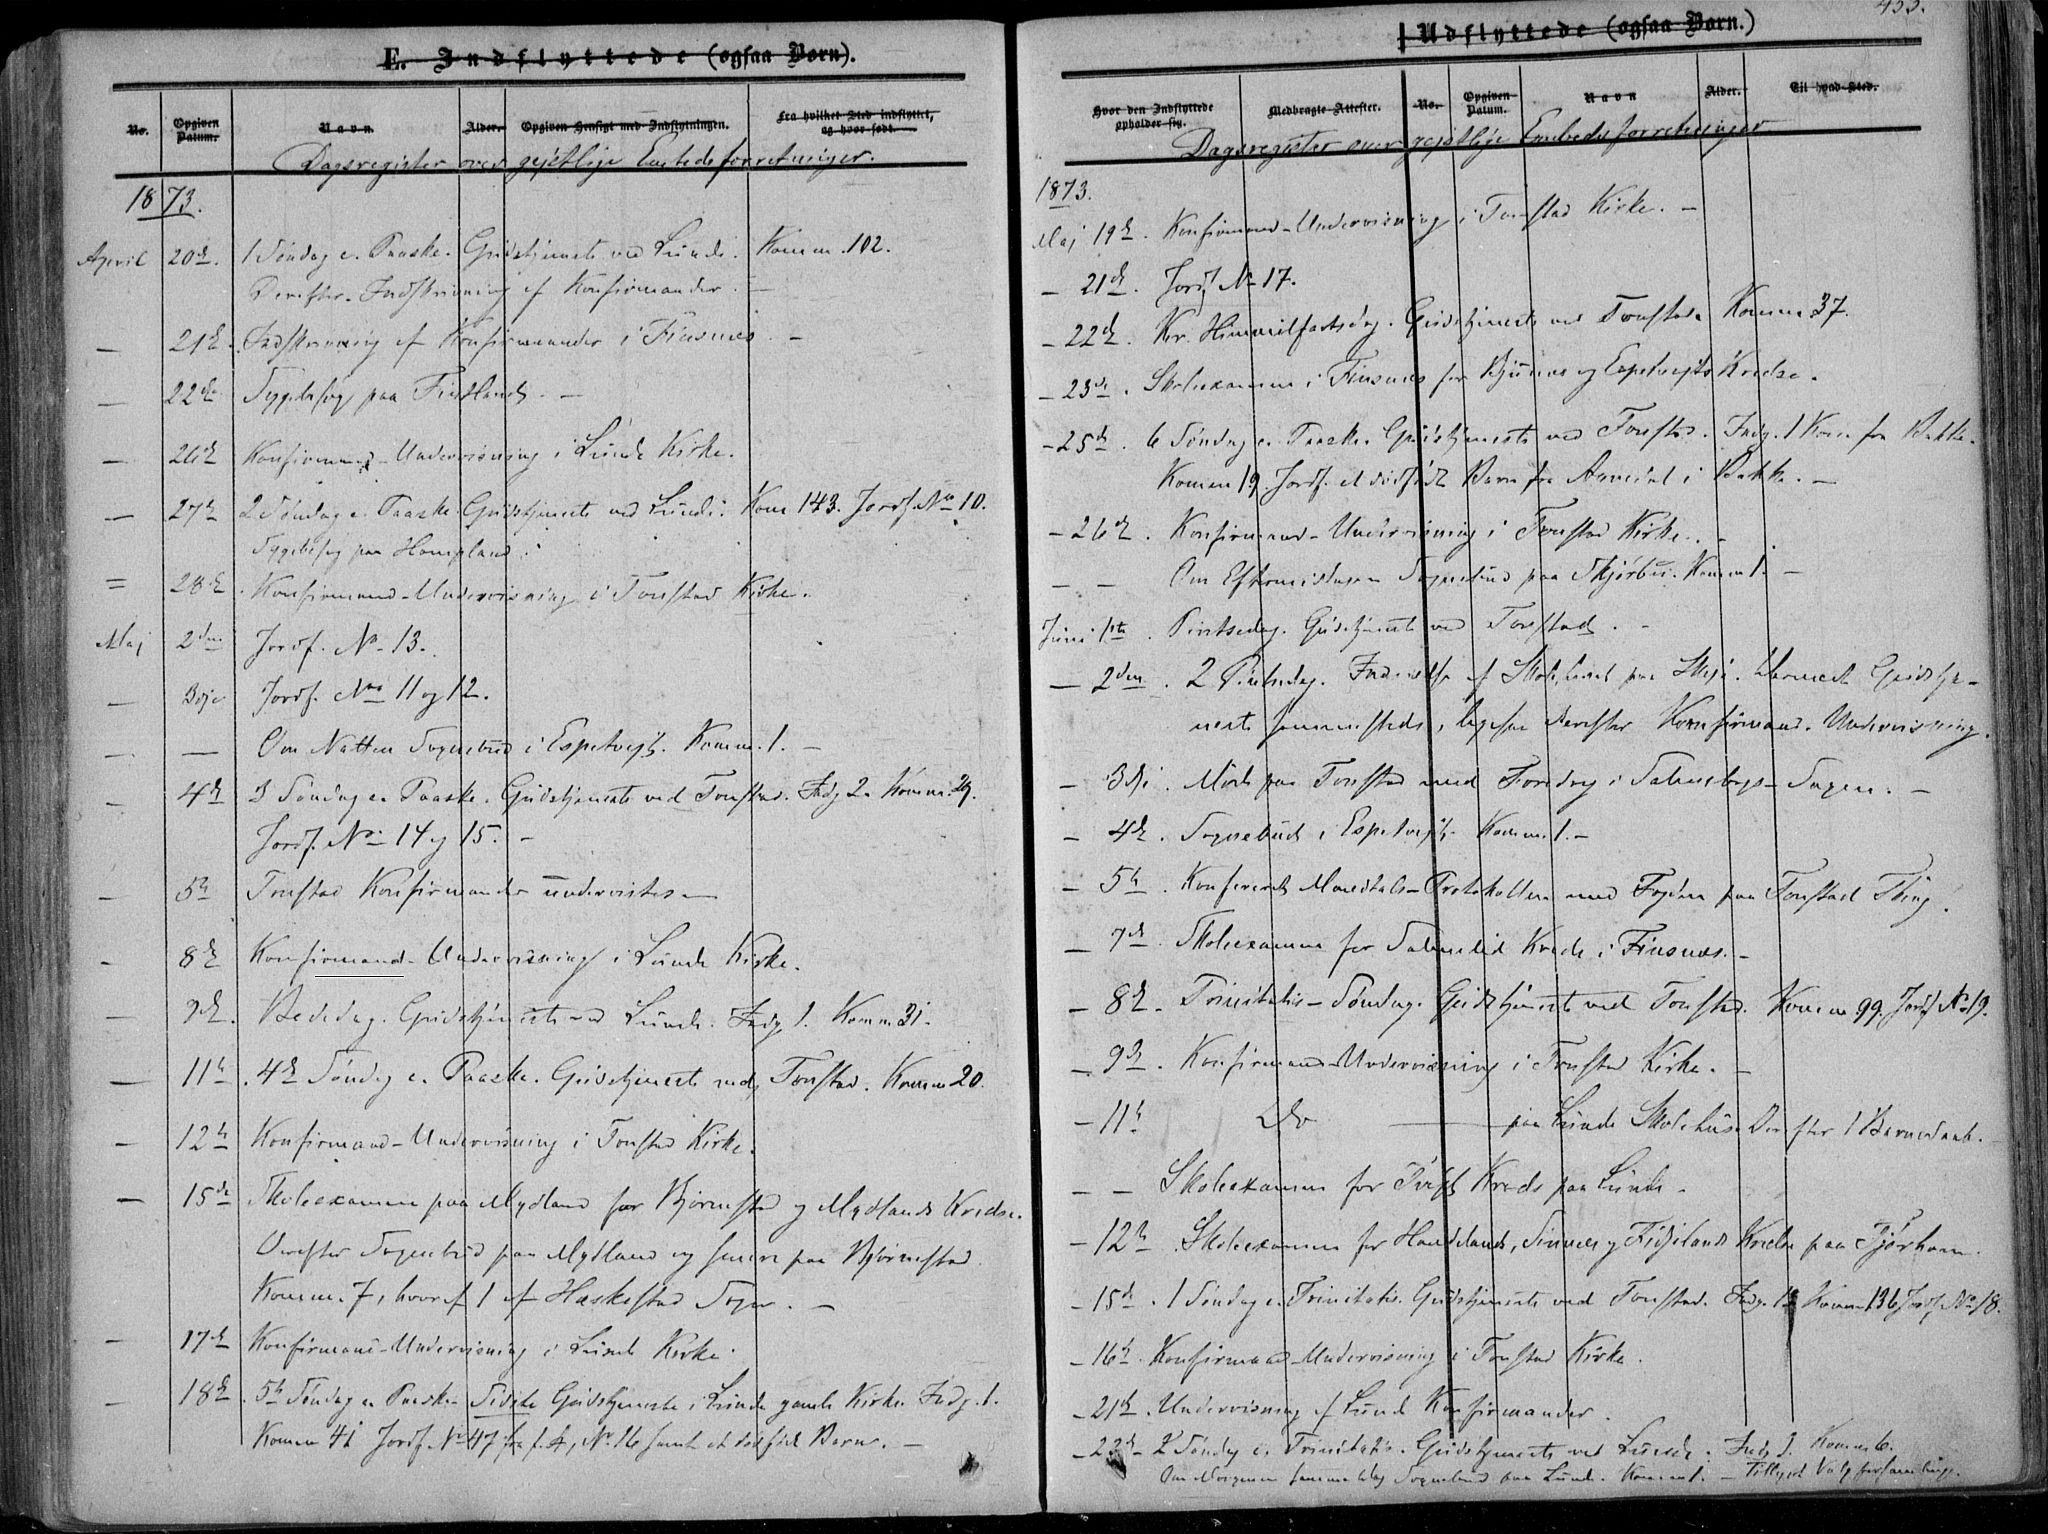 E. Indflyttede (ogsaa Børn).
No.
Opgiven Datum.
Navn.
Alder.
Opgiven Hensigt med Indflytningen.
Fra hvilket Sted indflyttet, og hvor født.
Dagsregister over gejstlige Embedsforretninger.
1873.
April 20de. 1 Søndag e. Paaske. Gudstjeneste ved Lunde. Komm. 102.
Derefter Indskrivning af Konfirmander. —
— 21de. Indskrivning af Konfirmander i Finsnes. —
— 22de Sygebesøg paa Fintland. —
— 26de Konfirmand-Undervisning i Lunde Kirke.
— 27de 2 Søndag e. Paaske. Gudstjeneste ved Lunde. Kom 143. Jordf. No 10.
Sygebesøg paa Hompland.
= 28de. Konfirmand-Undervisning i Tonstad Kirke.
Maj 2den Jordf. No 13.
— 3dje Jordf. No 11 og 12.
— — Om Natten Sognebud i Espetvejt. Komm. 1. —
— 4de 3 Søndag e. Paaske. Gudstjeneste ved Tonstad. Indg. 2. Komm. 29.
Jordf. No 14 og 15. —
— 5te Tonstad Konfirmander undervistes —
- 8de Konfirmand-Undervisning i Lunde Kirke.
— 9de. Bededag. Gudstjeneste ved Lunde. Indg. 1. Komm 31.
— 11te. 4de Søndag e. Paaske. Gudstjeneste ved Tonstad. Komm 20.
— 12te Konfirmand-Undervisning i Tonstad Kirke.
— 15de Skoleexamen paa Mydland for Bjørnestad og Mydlands Kredse.
Derefter Sognebud paa Mydland og senere paa Bjørnestad.
Komm. 7, hvoraf 1 af Heskestad Sogn. —
— 17de Konfirmand-Undervisning i Lunde Kirke.
— 18de. 5te Søndag e. Paaske. Sidste Gudstjeneste i Lunde gamle Kirke. Indg. 1.
Komm 41 Jordf. No 47 fra f. A, No. 16 samt et dødfødt Barn. —
453.
Udflyttede (ogsaa Børn.)
Hvor den Indflyttede opholder sig.
Medbragte Attester.
No.
Opgiven Datum.
Navn
Alder.
Til hvad Sted.
Dagsregister over gejstlige Embedsforretninger
1873.
Maj 19de. Konfirmand-Undervisning i Tonstad Kirke. —
— 21de. Jordf. No 17.
— 22de. Kr. Himmelfartsdag. Gudstjeneste ved Tonstad. Komm 37.
— 23de. Skoleexamen i Finsnes for og Espetvejts Kredse.
— 25de. 6 Søndag e. Paaske. Gudstjeneste ved Tonstad. Indg. 1 Kone fra Bakke.
Komm 19. Jordf. et dødfødt Barn fra Aamdal i Bakke. —
— 26de. Konfirmand-Undervisning i Tonstad Kirke. —
— — Om Eftermiddagen Sognebud paa Skjørbu. Komm 1. —
Juni 1ste. Pintsedag. Gudstjeneste ved Tonstad. —
— 2den. 2 Pintsedag. Indvielse af Skolehuset paa Skeie. Dermed Gudstje-
neste sammesteds, ligesaa derefter Konfirmand-Undervisning.
— 3dje. Møde paa Tonstad med Foredrag i Sagen. —
— 4de. Sognebud i Espetvejt. Komm. 1. —
— 5te. Konfereret Mandtals-Protokollen med Fogden paa Tonstad Thing.
— 7de. Skoleexamen for Kreds i Finsnes. —
— 8de. Trinitatis-Søndag. Gudstjeneste ved Tonstad. Komm 99. Jordf No 19.
— 9de. Konfirmand-Undervisning i Tonstad Kirke. —
— 11te Do — paa Lunde Skolehus. Derefter 1 Barnedaab. —
— — Skoleexamen for Kreds paa Lunde —
— 12te. Skoleexamen for Haudelands, Sinnes og Fidjelands Kredse paa Tjørhom.
— 15de. 1 Søndag e. Trinitatis. Gudstjeneste ved Tonstad. Indg. 1 Komm 136 Jordf. No 18.
— 16de. Konfirmand-Undervisning i Tonstad Kirke.
— 21de. Undervisning af Lunde Konfirmander.
— 22de 2 Søndag e. Trinitatis. Gudstjeneste ved Lunde. Indg. 2. Komm 6.
Om Morgenen samme Dag Sognebud paa Lunde. Komm 1. — Tillyst Valgforsamling.